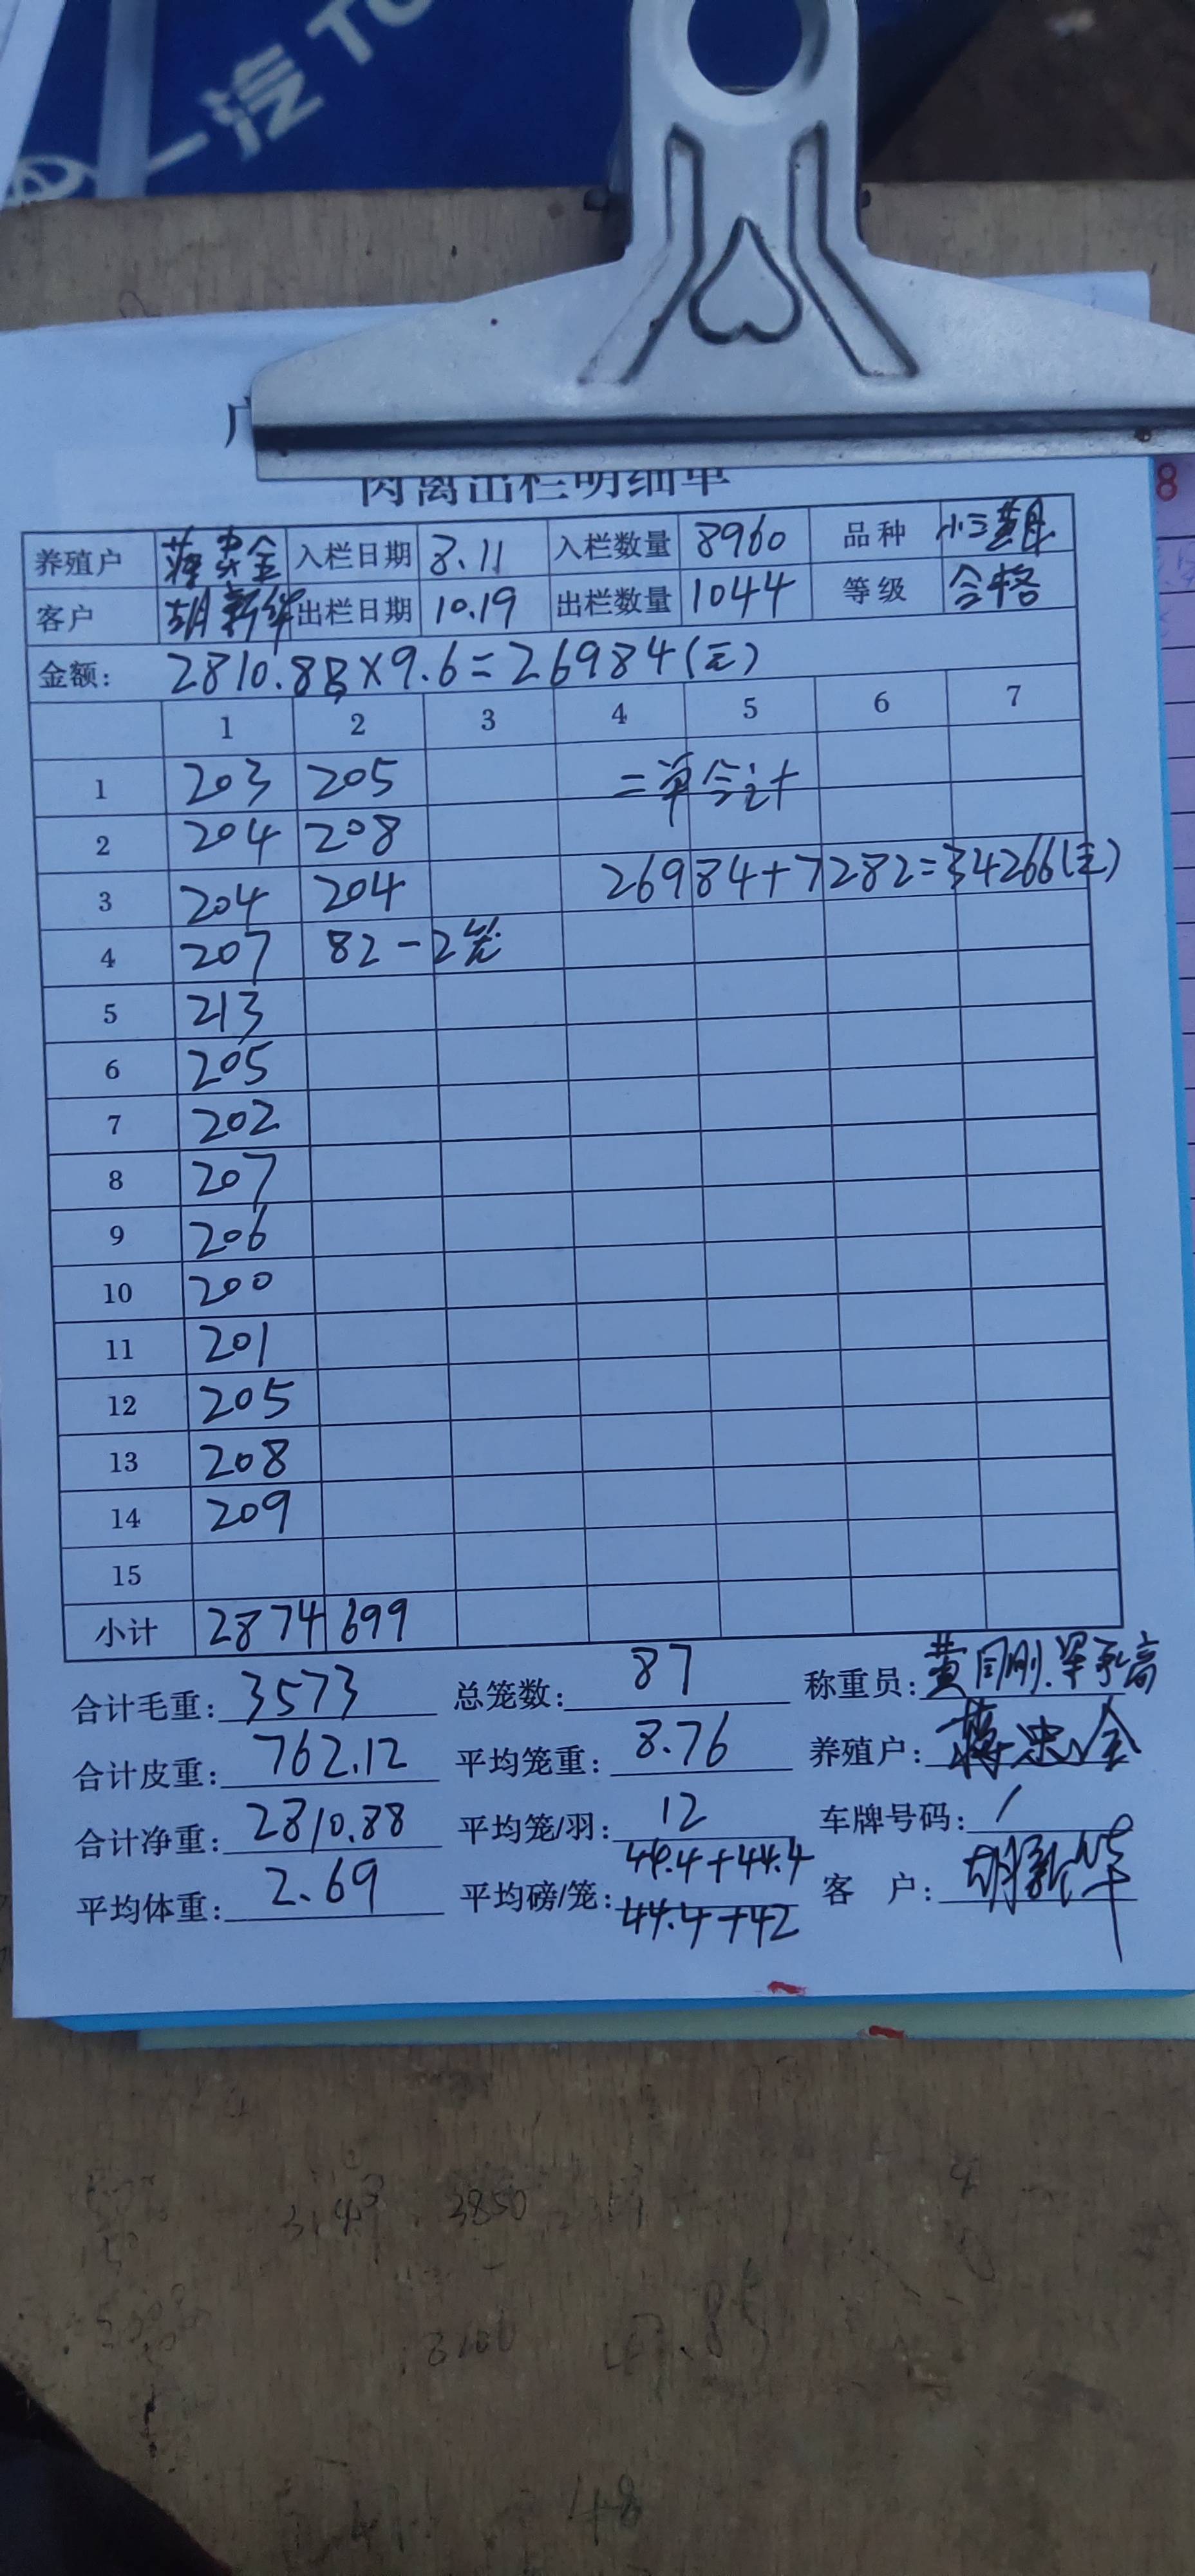 一汽 TO
肉禽出栏明细单
养殖户 蒋忠金 入栏日期 8.11 入栏数量 8960 品种
客户 胡新华 出栏日期 10.19 出栏数量 1044 等级 合格
金额: 2810.88×9.6=26984(元)
1 2 3 4 5 6 7
1 203 205 二单合计
2 204 208
3 204 204 26984+7282=34266(元)
4 207 82-2笼
5 213
6 205
7 202
8 207
9 206
10 200
11 201
12 205
13 208
14 209
15
小计 2874 699
合计毛重: 3573 总笼数: 87 称重员:
合计皮重: 762.12 平均笼重: 8.76 养殖户: 蒋忠金
合计净重: 2810.88 平均笼/羽: 12 车牌号码: /
平均体重: 2.69 平均磅/笼: 44.4+44.4 客 户: 胡新华
44.4+42
8
3850
48